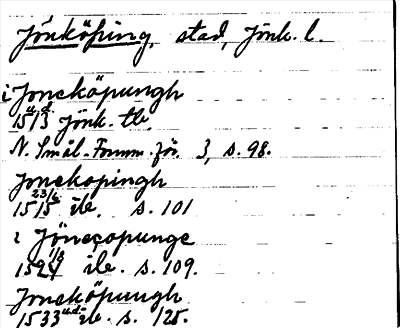 Jönköping, stad, Jönk. l.
i Joneköpungh
15 u.d. 13 Jönk. tb.
N. Smål. Fornm. för. 3, s. 98.
Jonekopingh
15 23/6 15 ib. s. 101
i Jöneçopunge
1524 ib. s. 109.
Joneköpungh
1533 u.d. ib. s. 125.